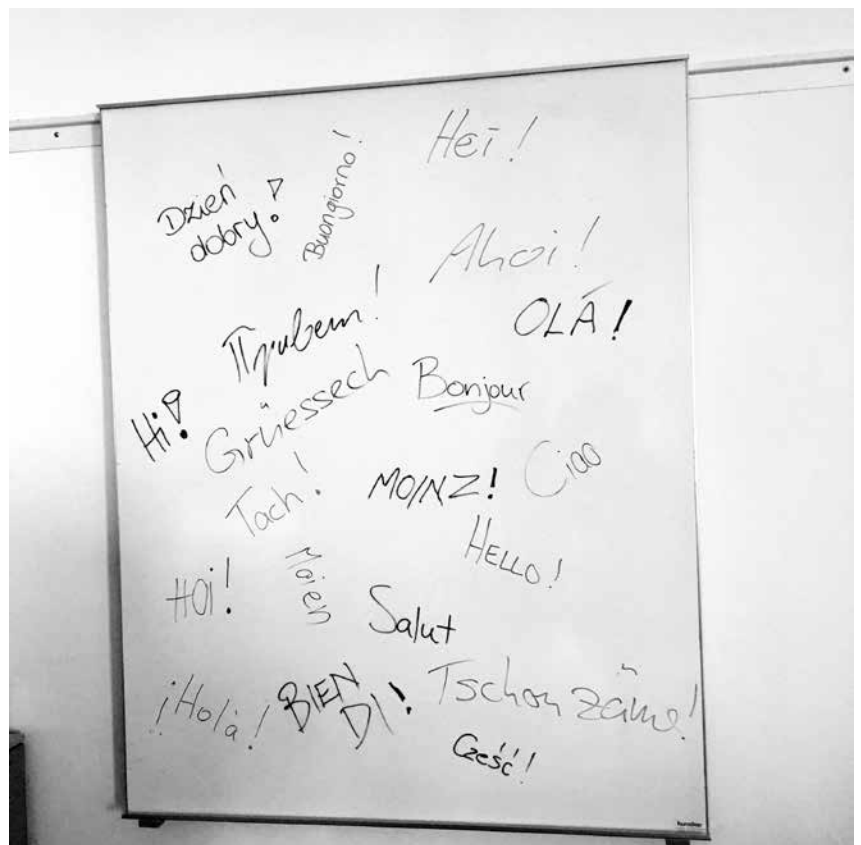 Hei!
Dzień
dobry!
Buongiorno!
Ahoi!
OLÁ!
Привет!
Bonjour
Hi!
Grüessech
Ciao
Tach!
MOINZ!
HELLO!
Hoi!
Moien
Salut
¡Hola!
BIEN
DI!
Tschou zäme!
Cześć!